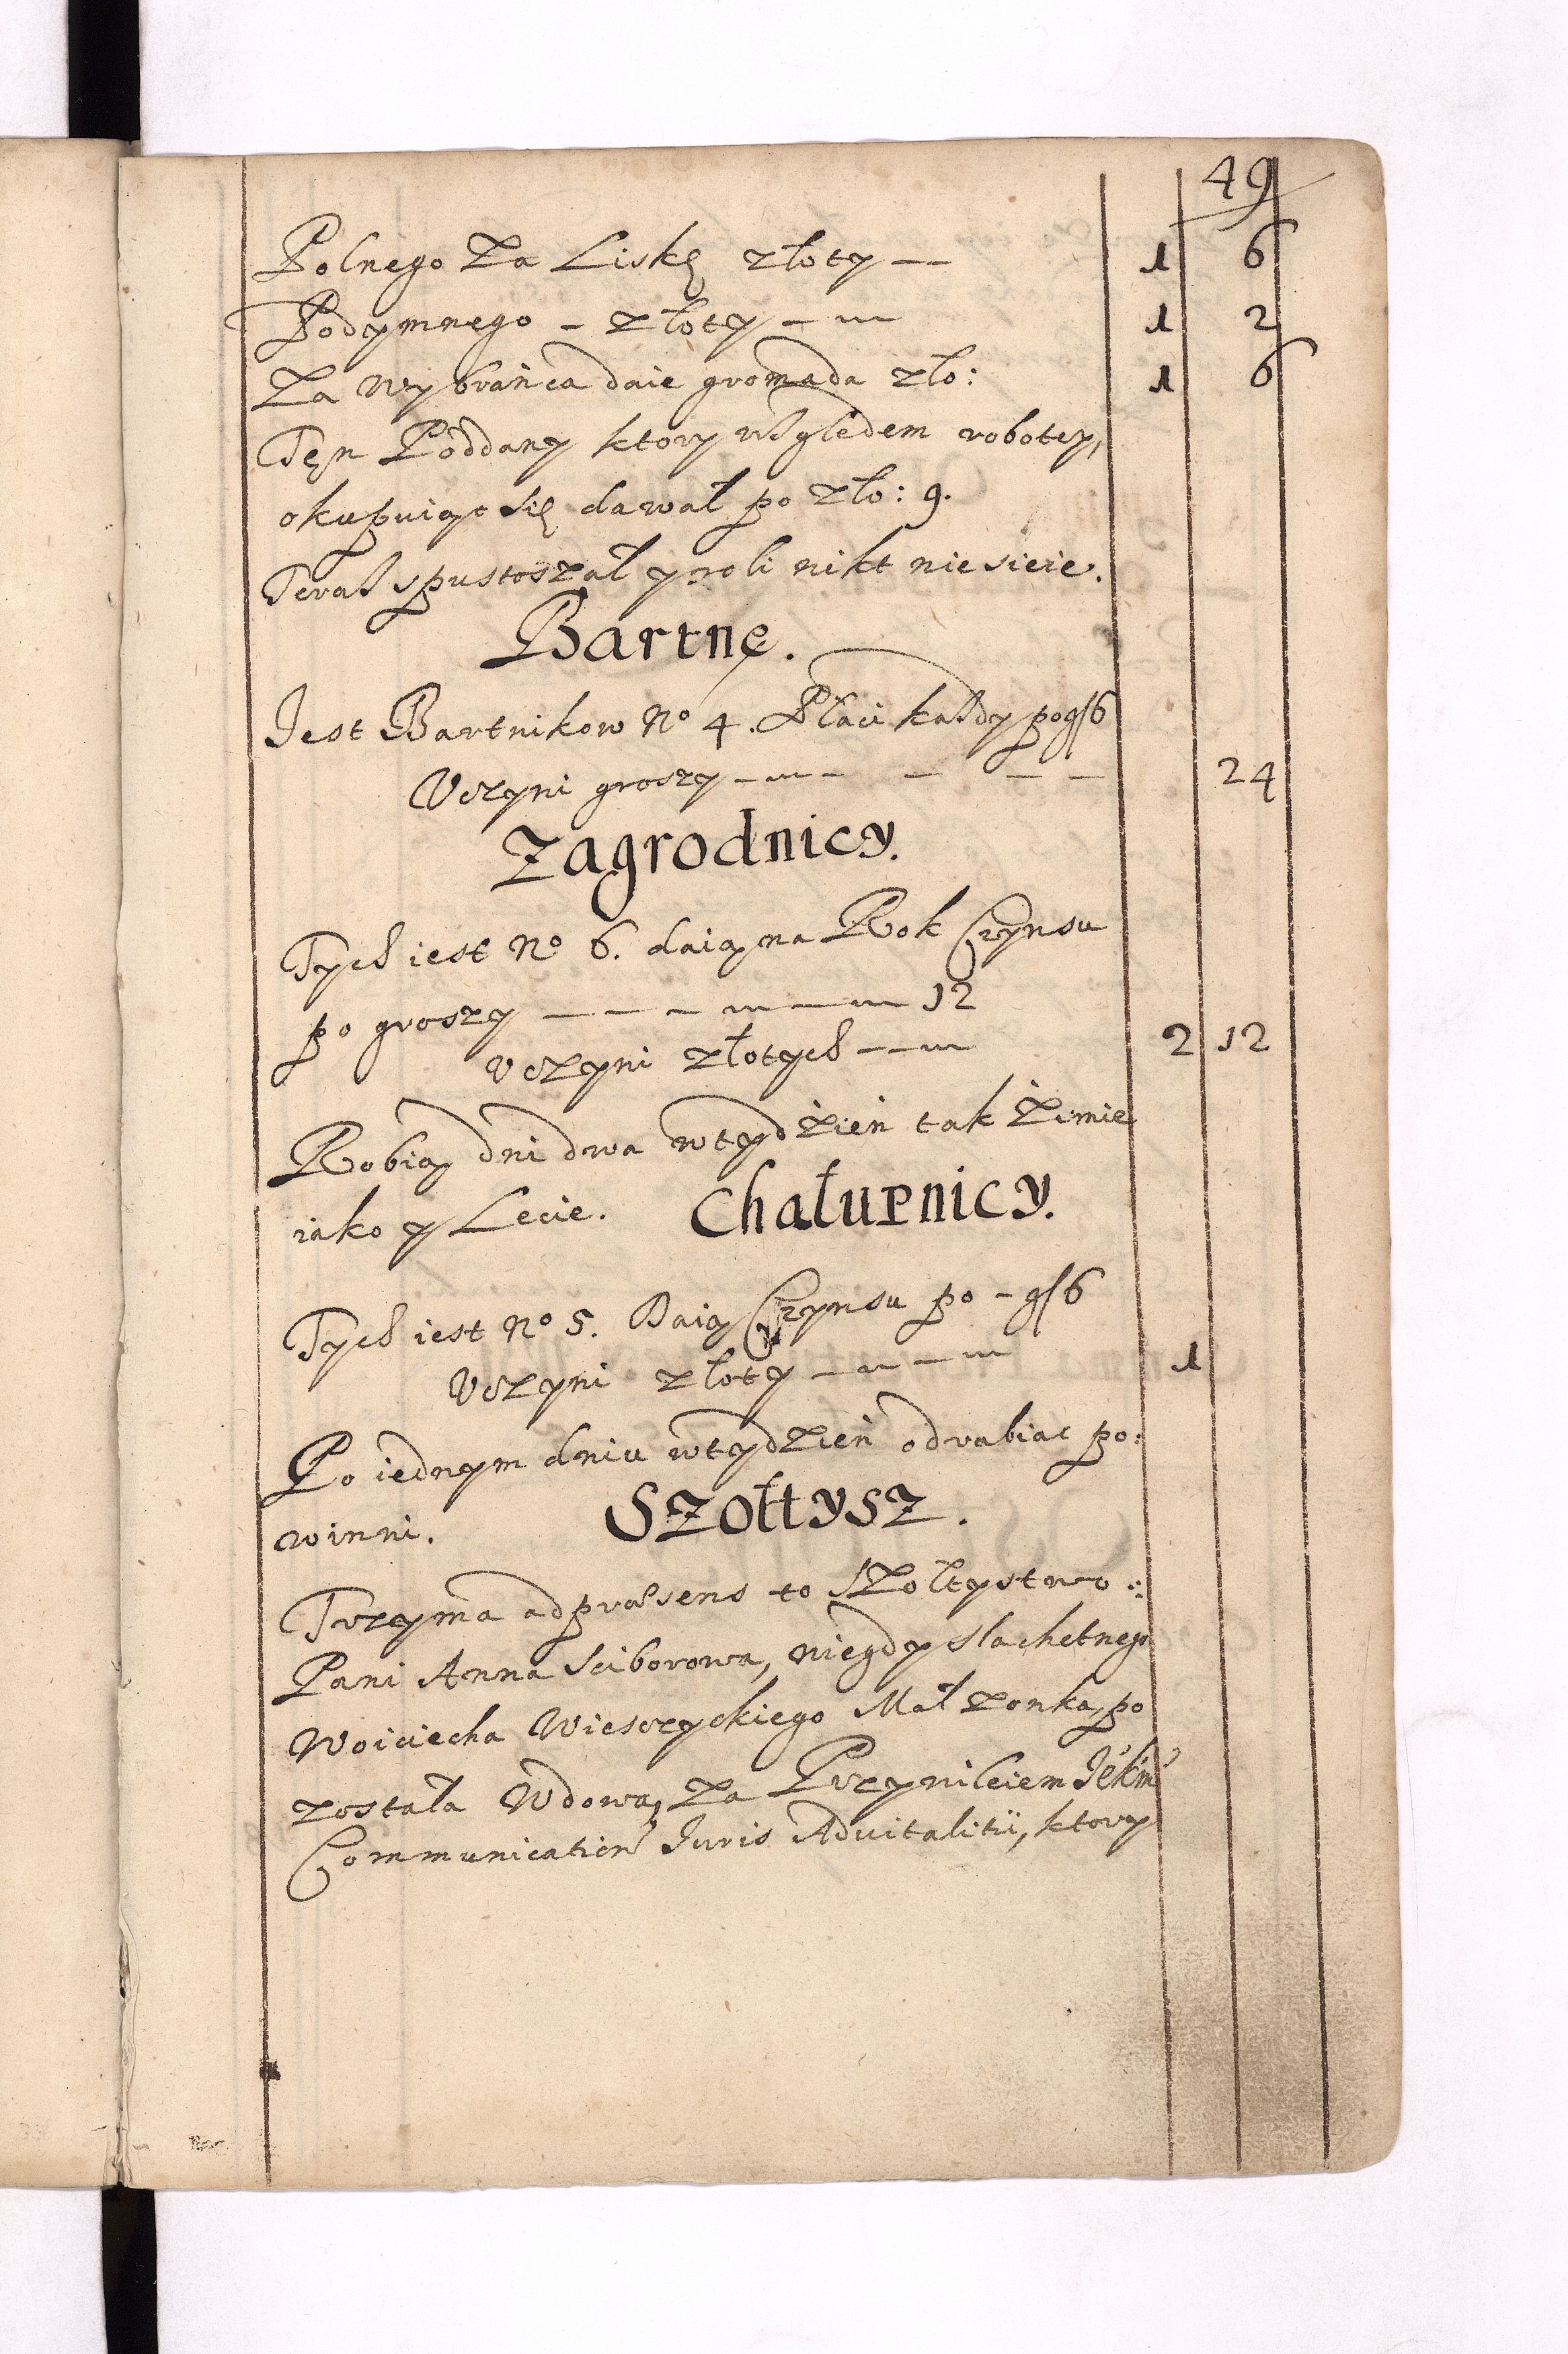 49
Polnego Za Liskę złoty — 1 6
Podymnego - złoty - 1 2
Za Wybrańca daie gromada zło: 1 6
Tęn Poddany ktory względem roboty,
okupuiąc się dawał po zło: 9.
Teraz spustoszał y roli nikt nie sieie.
Bartne.
Jest Bartnikow No 4. Płaci każdy po gr 6
Vczyni groszy — — — 24
Zagrodnicy.
Tych iest No 6. daią na Rok Czynsu
po groszy — — — 12
vczyni złotych — — 2 12
Robią dni dwa w tydzień tak Zimie
iako y Lecie. Chałupnicy.
Tych iest No 5. Daią Czynsu po - gr 6
Vczyni złoty — — 1
Po iednym dniu w tydzień odrabiac po:
winni. Szołtysz.
Trzyma ad præsens to Szołtystwo:
Pani Anna Sciborowa, niegdy slachetnego
Woiciecha Wiesczyckiego Małzonka, po
została Wdowa, Za Przywileiem JeKm
Communicatien Juris Advitalitii, ktory